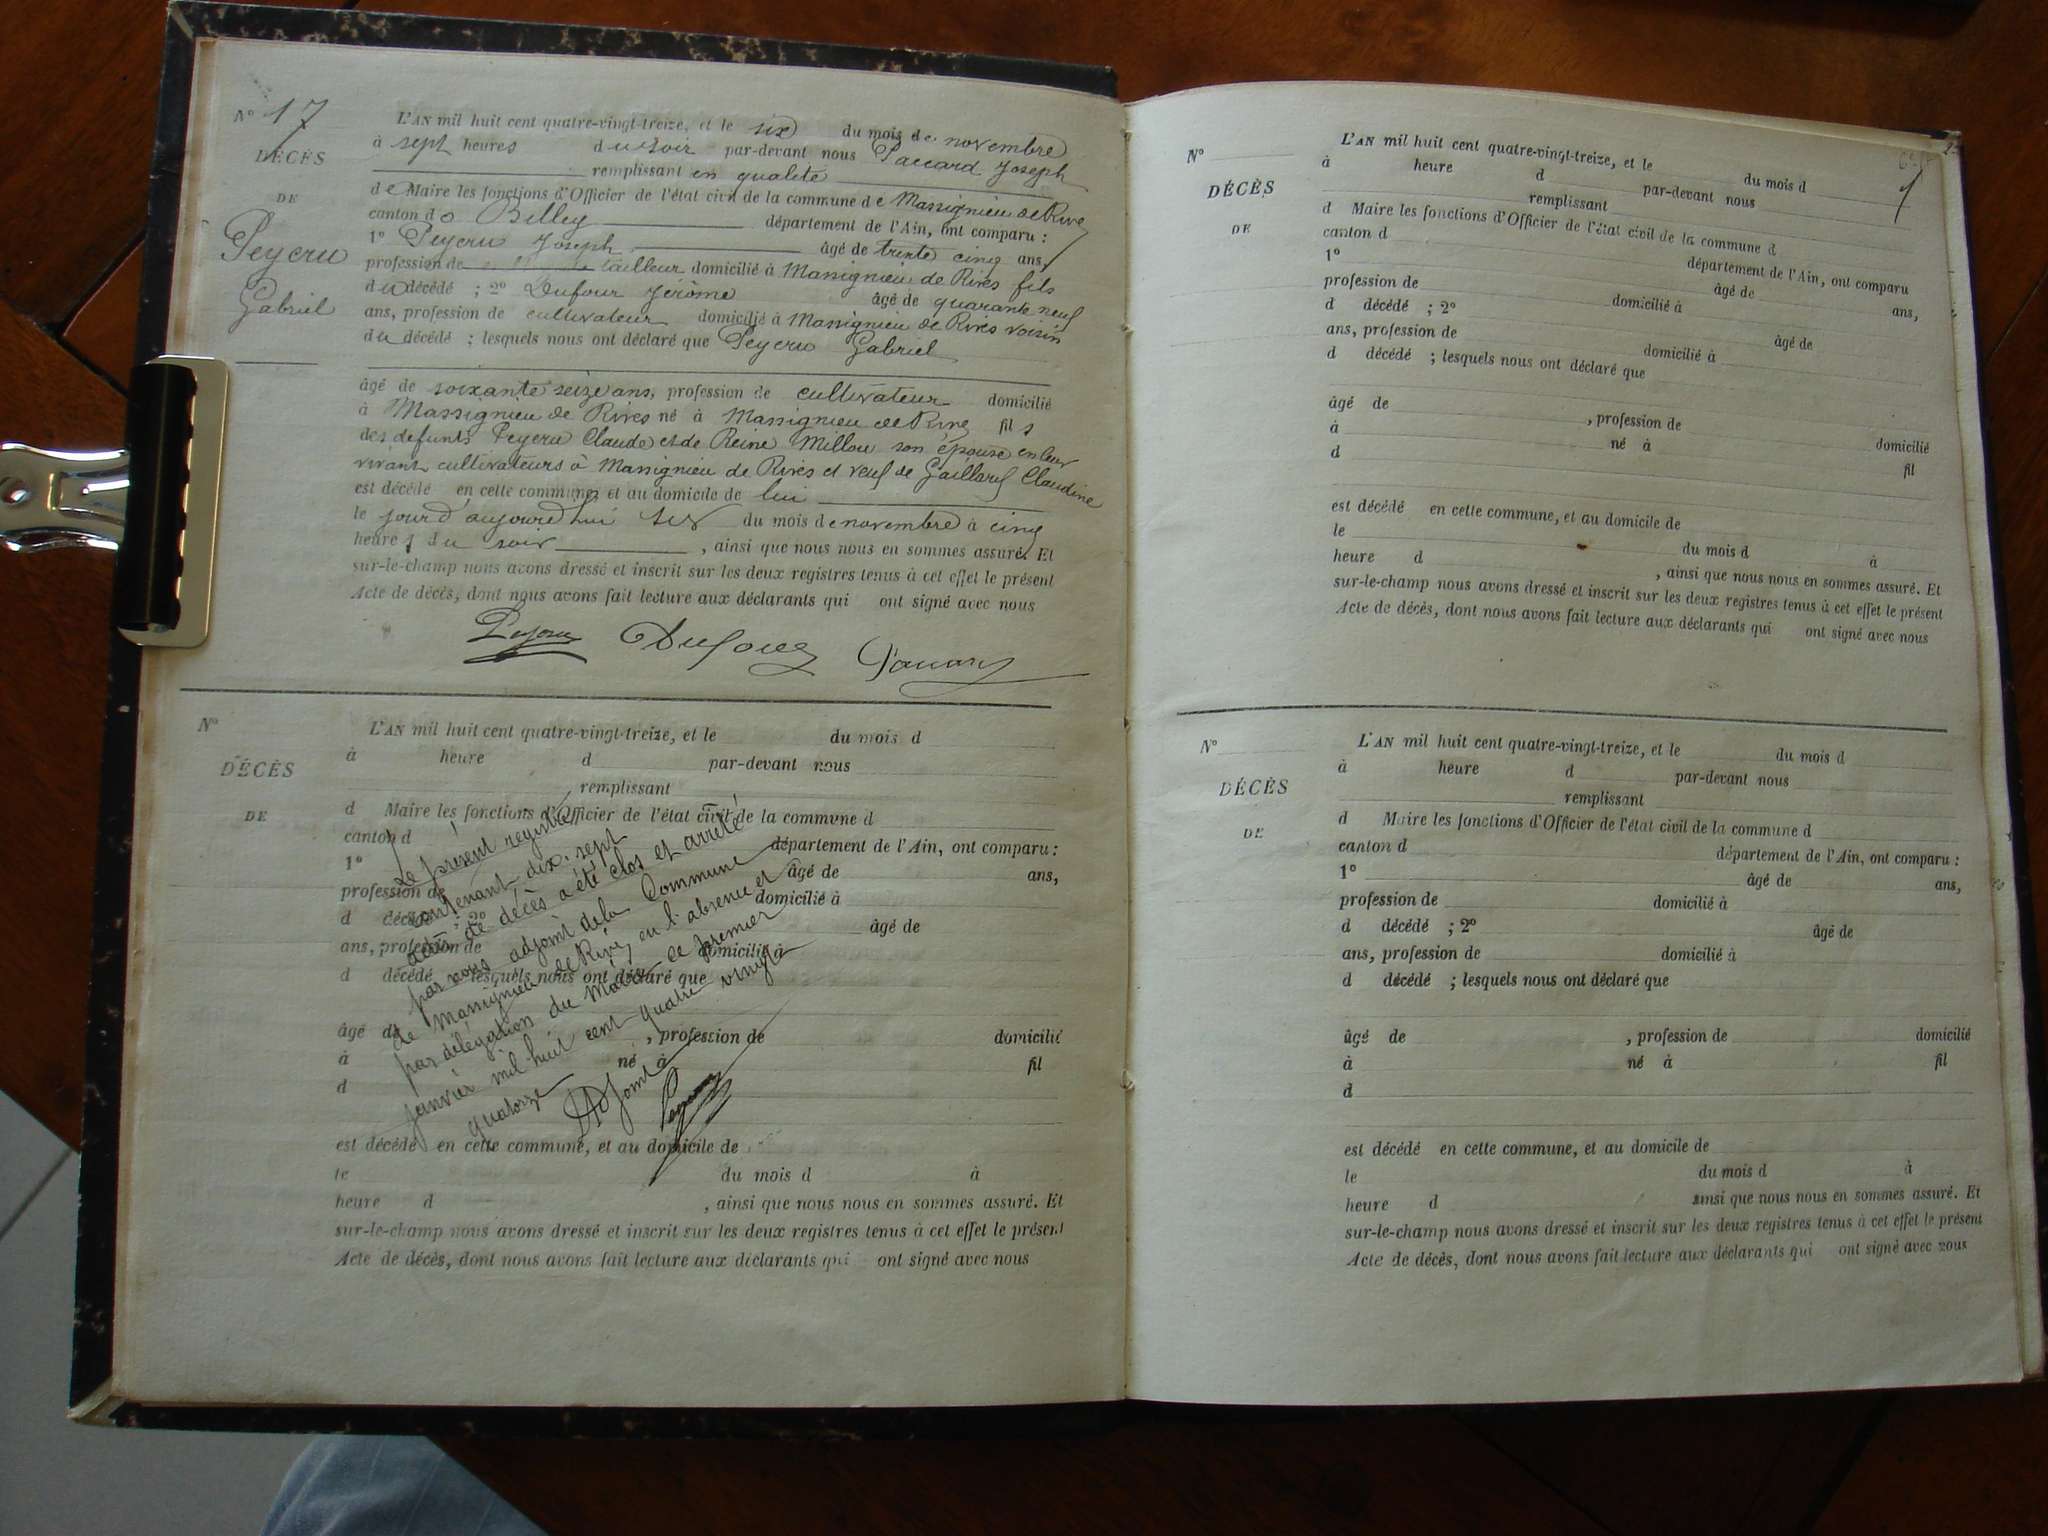 N° 17
DÉCÈS
DE
Peycru
Gabriel
L'AN mil huit cent quatre-vingt-treize, et le six du mois de novembre
à sept heures du soir par-devant nous Paccard Joseph
remplissant en qualité
de Maire les fonctions d'Officier de l'état civil de la commune de Massignieu de Rives
canton de Belley département de l'Ain, ont comparu :
1° Peycru Joseph âgé de trente cinq ans,
profession de tailleur domicilié à Massignieu de Rives fils
du décédé ; 2° Dufour Jérôme âgé de quarante neuf
ans, profession de cultivateur domicilié à Massignieu de Rives voisin
du décédé ; lesquels nous ont déclaré que Peycru Gabriel
âgé de soixante seize ans, profession de cultivateur domicilié
à Massignieu de Rives né à Massignieu de Rives fils
des defunts Peycru Claude et de Reine Millou son épouse en leur
vivant cultivateurs à Massignieu de Rives et veuf de Gaillard Claudine
est décédé en cette commune, et au domicile de lui
le jour d'aujourd'hui six du mois de novembre à cinq
heures du soir , ainsi que nous nous en sommes assuré. Et
sur-le-champ nous avons dressé et inscrit sur les deux registres tenus à cet effet le présent
Acte de décès, dont nous avons fait lecture aux déclarants qui ont signé avec nous
Dufour Paccard
N°
DÉCÈS
DE
L'AN mil huit cent quatre-vingt-treize, et le du mois d
à heure d par-devant nous
remplissant
d Maire les fonctions d'Officier de l'état civil de la commune d
canton d département de l'Ain, ont comparu :
1° âgé de ans,
profession de domicilié à
d décédé ; 2° âgé de
ans, profession de domicilié à
d décédé lesquels nous ont déclaré que
âgé de , profession de domicilié
à né à fil
d
est décédé en cette commune, et au domicile de
le du mois d à
heure d , ainsi que nous nous en sommes assuré. Et
sur-le-champ nous avons dressé et inscrit sur les deux registres tenus à cet effet le présent
Acte de décès, dont nous avons fait lecture aux déclarants qui ont signé avec nous
Le présent registre
contenant dix-sept
actes de décès a été clos et arrêté
par nous adjoint de la Commune
de Massignieu de Rives, en l'absence et
par délégation du Maire ce premier
janvier mil huit cent quatre vingt
quatorze
L'Adjoint
N°
DÉCÈS
DE
L'AN mil huit cent quatre-vingt-treize, et le du mois d
à heure d par-devant nous
remplissant
d Maire les fonctions d'Officier de l'état civil de la commune d
canton d département de l'Ain, ont comparu
1° âgé de ans,
profession de domicilié à
d décédé ; 2° âgé de
ans, profession de domicilié à
d décédé ; lesquels nous ont déclaré que
âgé de , profession de domicilié
à né à fil
d
est décédé en cette commune, et au domicile de
le du mois d à
heure d , ainsi que nous nous en sommes assuré. Et
sur-le-champ nous avons dressé et inscrit sur les deux registres tenus à cet effet le présent
Acte de décès, dont nous avons fait lecture aux déclarants qui ont signé avec nous
N°
DÉCÈS
DE
L'AN mil huit cent quatre-vingt-treize, et le du mois d
à heure d par-devant nous
remplissant
d Maire les fonctions d'Officier de l'état civil de la commune d
canton d département de l'Ain, ont comparu :
1° âgé de ans,
profession de domicilié à
d décédé ; 2° âgé de
ans, profession de domicilié à
d décédé ; lesquels nous ont déclaré que
âgé de , profession de domicilié
à né à fil
d
est décédé en cette commune, et au domicile de
le du mois d à
heure d ainsi que nous nous en sommes assuré. Et
sur-le-champ nous avons dressé et inscrit sur les deux registres tenus à cet effet le présent
Acte de décès, dont nous avons fait lecture aux déclarants qui ont signé avec nous